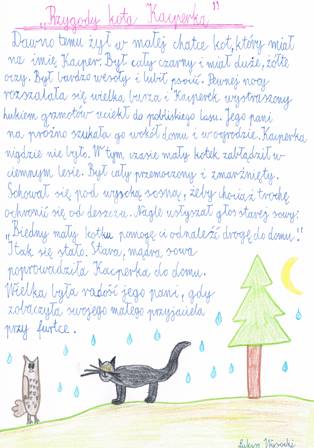 "Przygody kota Kacperka"
Dawno temu żył w małej chatce kot, który miał
na imię Kacper. Był cały czarny i miał duże, żółte
oczy. Był bardzo wesoły i lubił psocić. Pewnej nocy
rozszalała się wielka burza i Kacperek wystraszony
hukiem grzmotów uciekł do pobliskiego lasu. Jego pani
na próżno szukała go wokół domu i w ogrodzie. Kacperka
nigdzie nie było. W tym czasie mały kotek zabłądził w
ciemnym lesie. Był cały przemoczony i zmarznięty.
Schował się pod wysoką sosną, żeby chociaż trochę
ochronić się od deszczu. Nagle usłyszał głos starej sowy:
„Biedny mały kotku pomogę ci odnaleźć drogę do domu!"
I tak się stało. Stara, mądra sowa
poprowadziła Kacperka do domu.
Wielka była radość jego pani, gdy
zobaczyła swojego małego przyjaciela
przy furtce.
Łukasz Wysocki